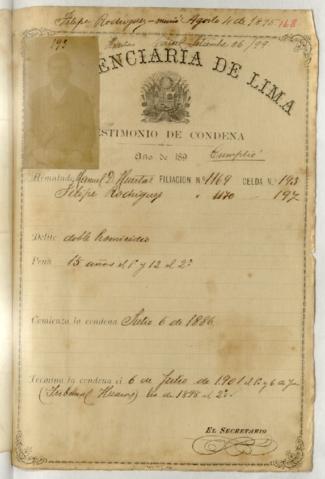 Felipe Rodriguez — murió Agosto 4 de 1895 168
193
26/99
ENCIARIA DE LIMA
TESTIMONIO DE CONDENA
Año de 189 Cumplió
Rematado Manuel D. Huertas FILIACION N.º 1169 CELDA N.º 193
Felipe Rodriguez " 1170 — 197
Delito doble homicidio
Pena 15 años el 1º y 12 el 2º
Comienza la condena Julio 6 de 1886
Termina la condena el 6 de Julio de 1901 el 1º y 6 de
(Tribunal Huaraz) de 1898 el 2º
EL SECRETARIO